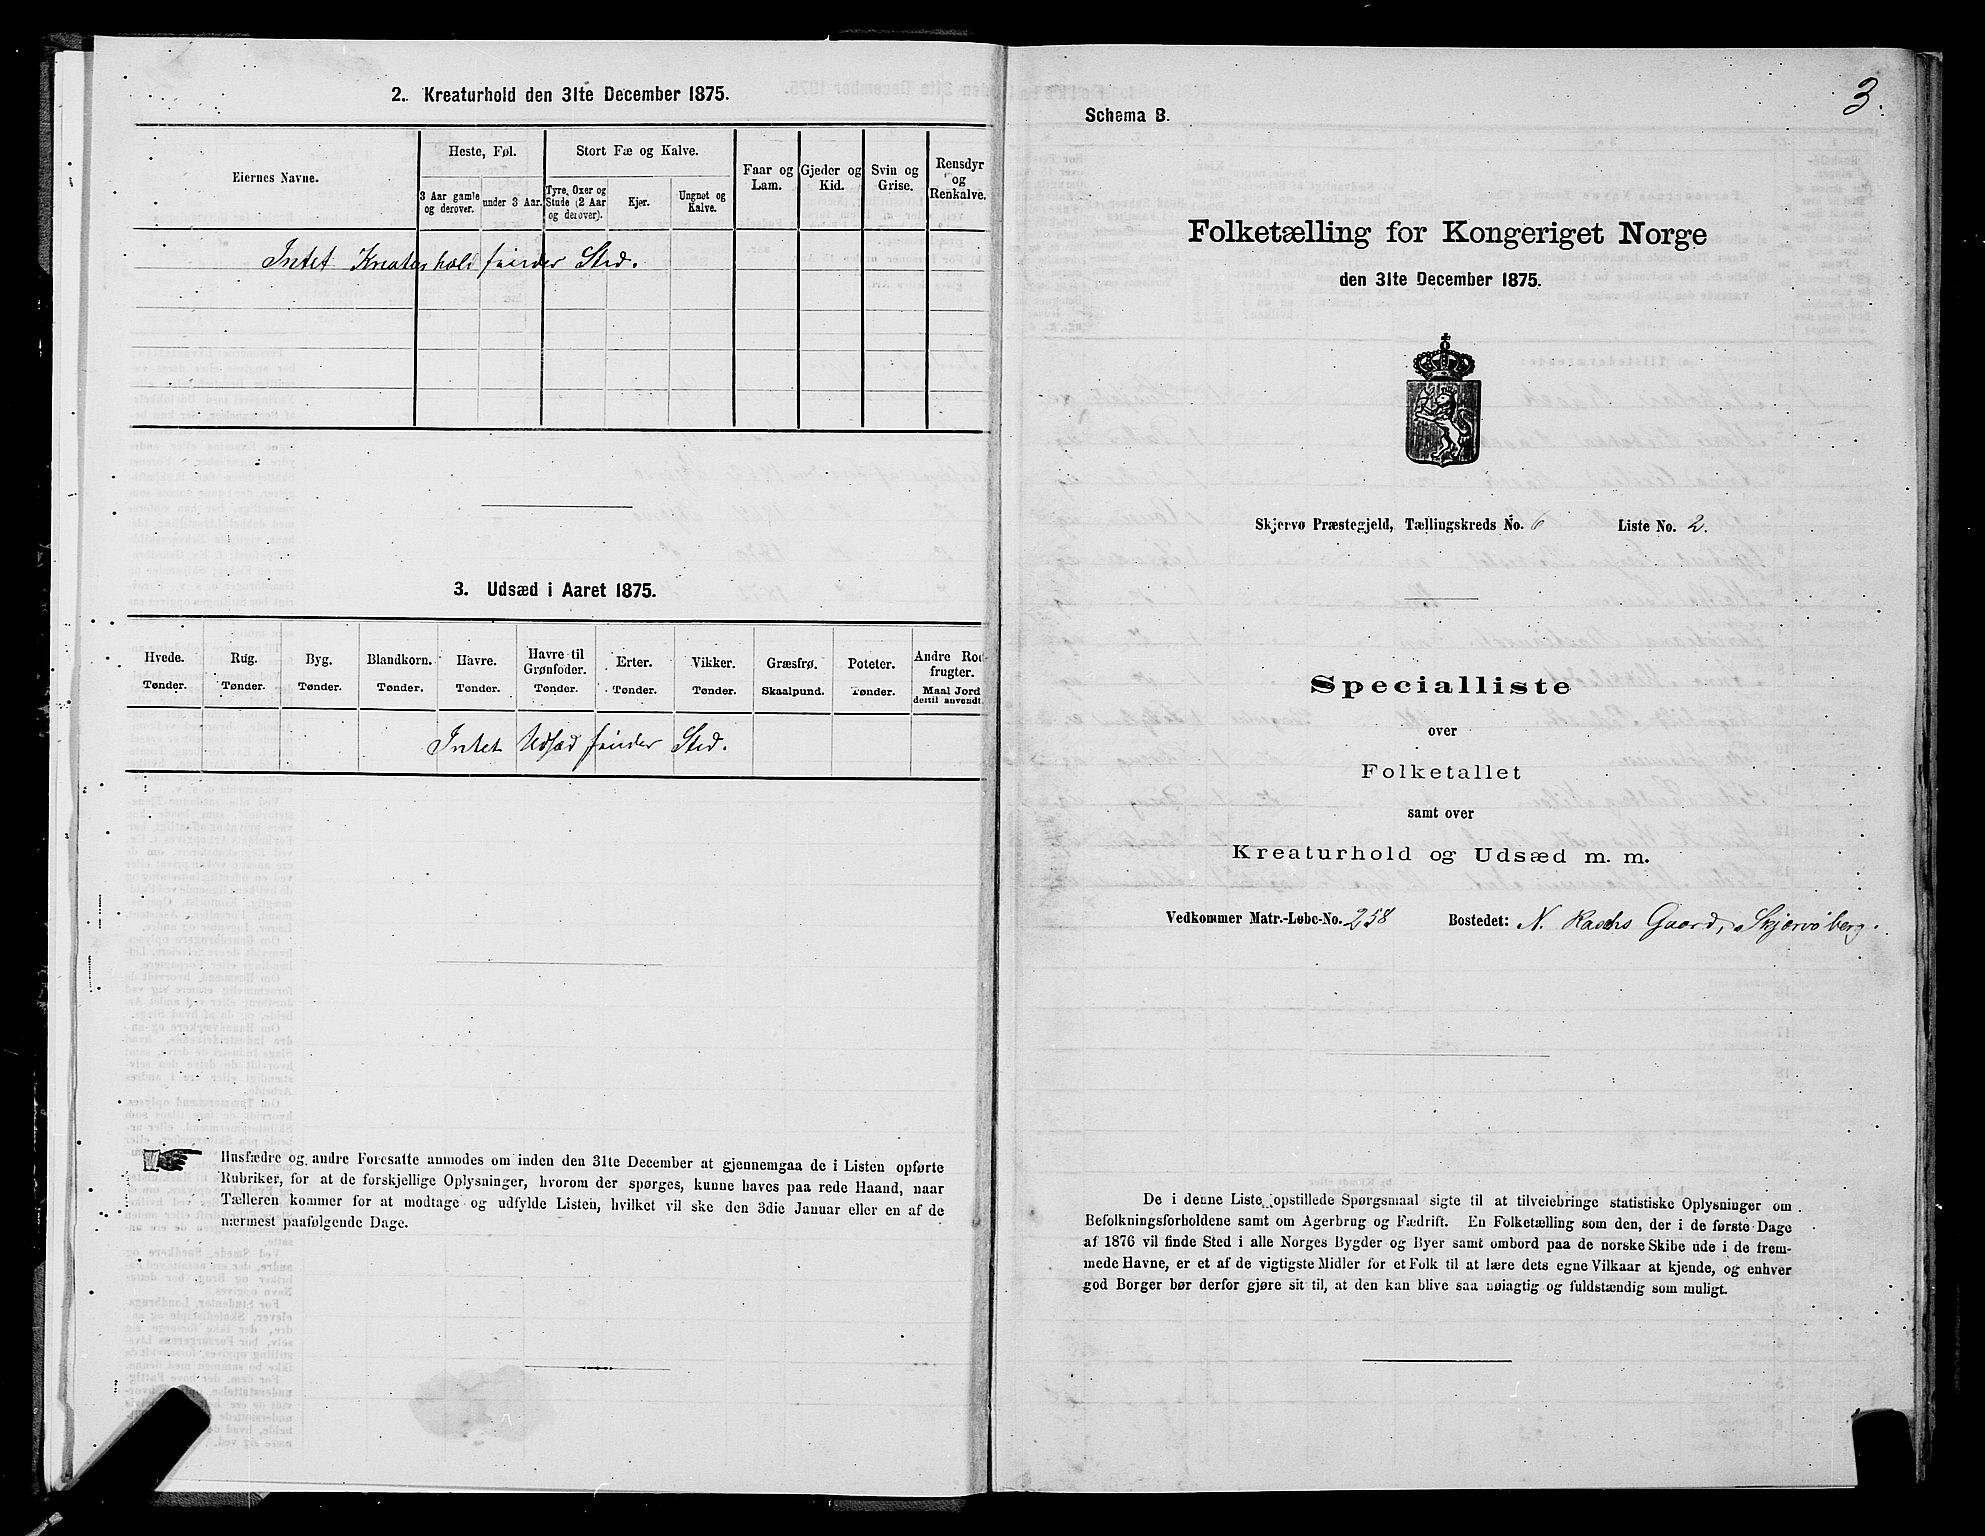 2. Kreaturhold den 31te December 1875.
Eiernes Navne.
Heste, Føl.
Stort Fæ og Kalve.
3 Aar gamle og derover.
under 3 Aar.
Tyre, Oxer og Stude (2 Aar og derover).
Kjer.
Ungnet og Kalve.
Faar og Lam.
Gjeder og Kid.
Svin og Grise.
Rensdyr og Renkalve.
Intet Kreaturhold finder Sted.
3. Udsæd i Aaret 1875.
Hvede. Rug. Byg. Blandkorn. Havre. Havre til Grønfoder. Erter. Vikker. Græsfrø. Poteter. Andre Rodfrugter.
Tønder. Tønder. Tønder. Tønder. Tønder. Tønder. Tønder. Tønder. Skaalpund. Tønder. Maal Jord dertil anvendt.
Intet Udsæd finder Sted.
Husfædre og andre Foresatte anmodes om inden den 31te December at gjennemgaa de i Listen opførte
Rubriker, for at de forskjellige Oplysninger, hvorom der spørges, kunne haves paa rede Haand, naar
Tælleren kommer for at modtage og udfylde Listen, hvilket vil ske den 3die Januar eller en af de
nærmest paafølgende Dage.
3.
Schema B.
Folketælling for Kongeriget Norge
den 31te December 1875.
Skjervø Præstegjeld, Tællingskreds No. 6 Liste No. 2.
Specialliste
over
Folketallet
samt over
Kreaturhold og Udsæd m. m.
Vedkommer Matr.-Løbe-No. 258 Bostedet: N. Raschs Gaard, Skjærvöberg.
De i denne Liste opstillede Spørgsmaal sigte til at tilveiebringe statistiske Oplysninger om
Befolkningsforholdene samt om Agerbrug og Fædrift. En Folketælling som den, der i de første Dage
af 1876 vil finde Sted i alle Norges Bygder og Byer samt ombord paa de norske Skibe ude i de frem-
mede Havne, er et af de vigtigste Midler for et Folk til at lære dets egne Vilkaar at kjende, og enhver
god Borger bør derfor gjøre sit til, at den kan blive saa nøiagtig og fuldstændig som muligt.